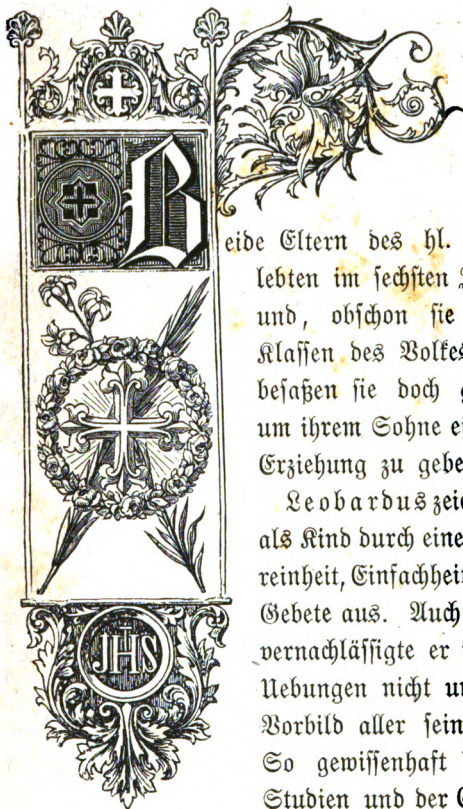 Beide Eltern des hl.
lebten im sechsten
und, obschon sie
Klassen des Volkes
besaßen sie doch
um ihrem Sohne
Erziehung zu
Leobardus
als Kind durch eine
reinheit, Einfachheit
Gebete aus. Auch
vernachlässigte er
Uebungen nicht
Vorbild aller
So gewissenhaft
Studien und der
JHS